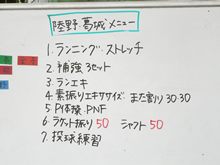 陸野・葛城メニュー
1. ランニング・ストレッチ
2. 補強3セット
3. ランエキ
4. 素振りエキササイズ まだ割り30・30
5. P体操、PNF
6. ラケット振り 50 シャフト 50
7. 投球練習